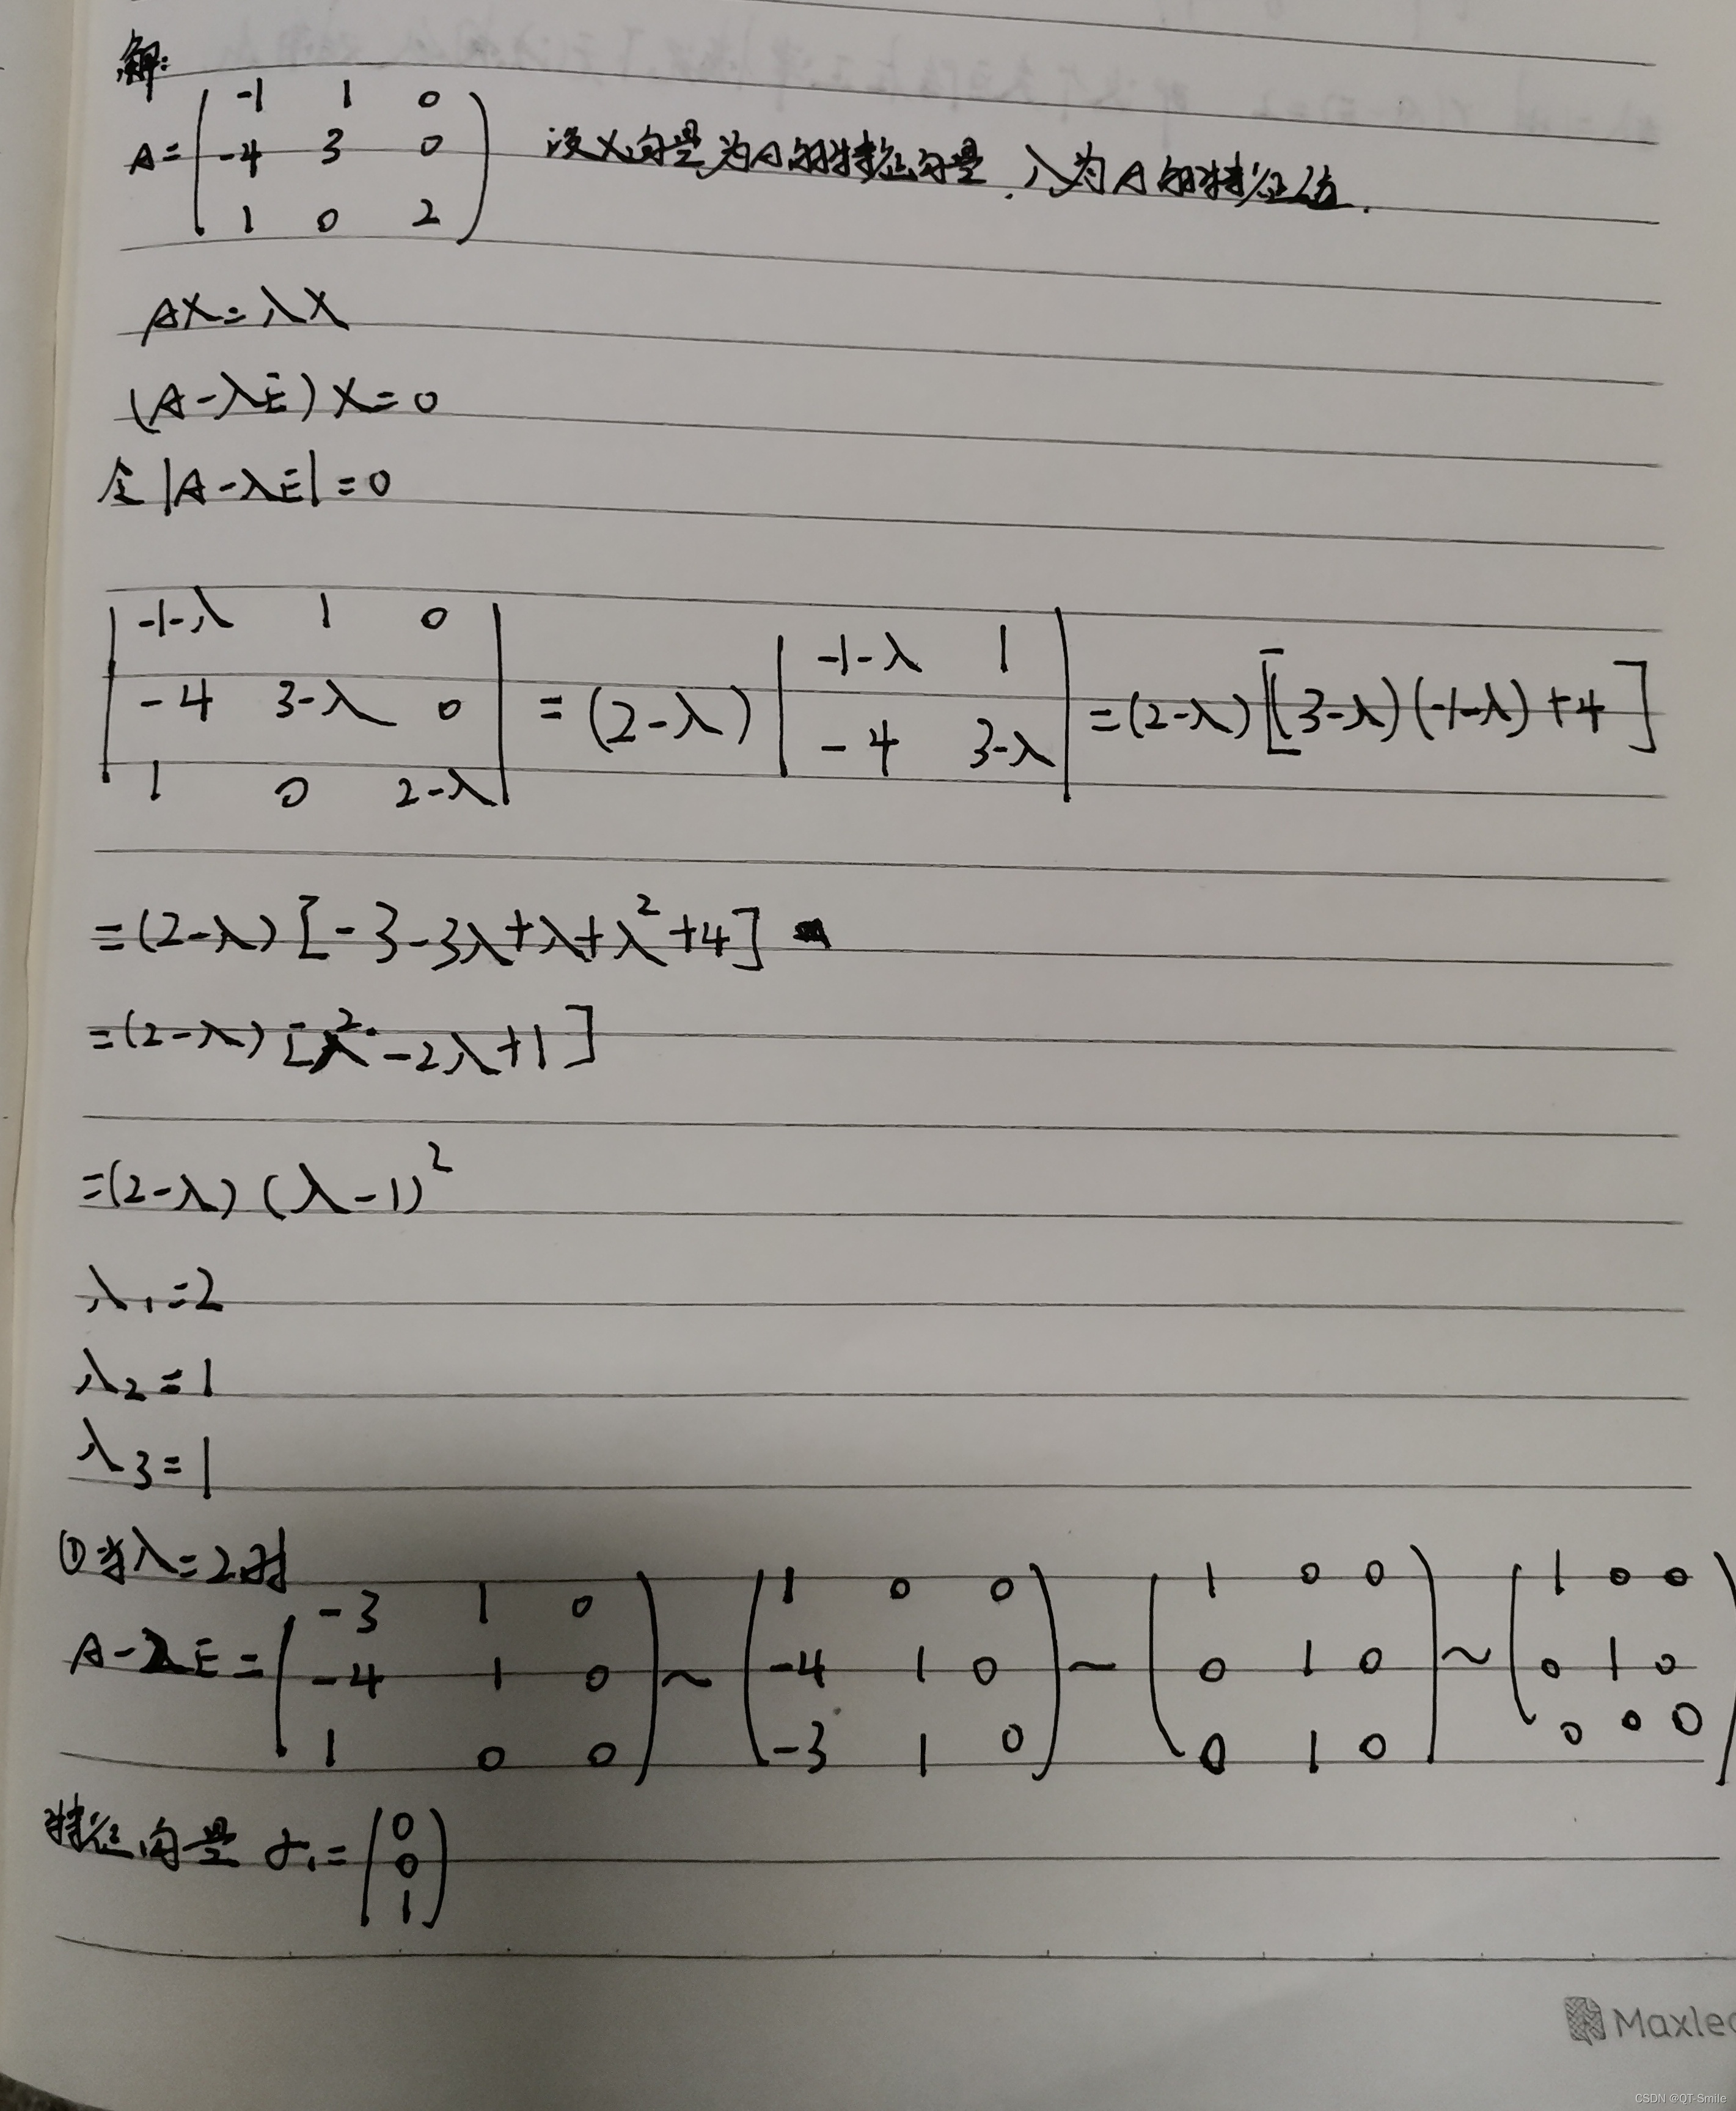 解:
A= ( -1 1 0 ; -4 3 0 ; 1 0 2 ) 设X向量为A的特征向量, λ为A的特征值.
AX=λX
(A-λE)X=0
令|A-λE|=0
| -1-λ 1 0 ; -4 3-λ 0 ; 1 0 2-λ | =(2-λ) | -1-λ 1 ; -4 3-λ | =(2-λ)[(3-λ)(-1-λ)+4]
=(2-λ)[-3-3λ+λ+λ²+4]
=(2-λ)[λ²-2λ+1]
=(2-λ)(λ-1)²
λ₁=2
λ₂=1
λ₃=1
①当λ=2时
A-λE= ( -3 1 0 ; -4 1 0 ; 1 0 0 ) ~ ( 1 0 0 ; -4 1 0 ; -3 1 0 ) ~ ( 1 0 0 ; 0 1 0 ; 0 1 0 ) ~ ( 1 0 0 ; 0 1 0 ; 0 0 0 )
特征向量 α₁= ( 0 ; 0 ; 1 )
Maxlea
CSDN @QT-Smile